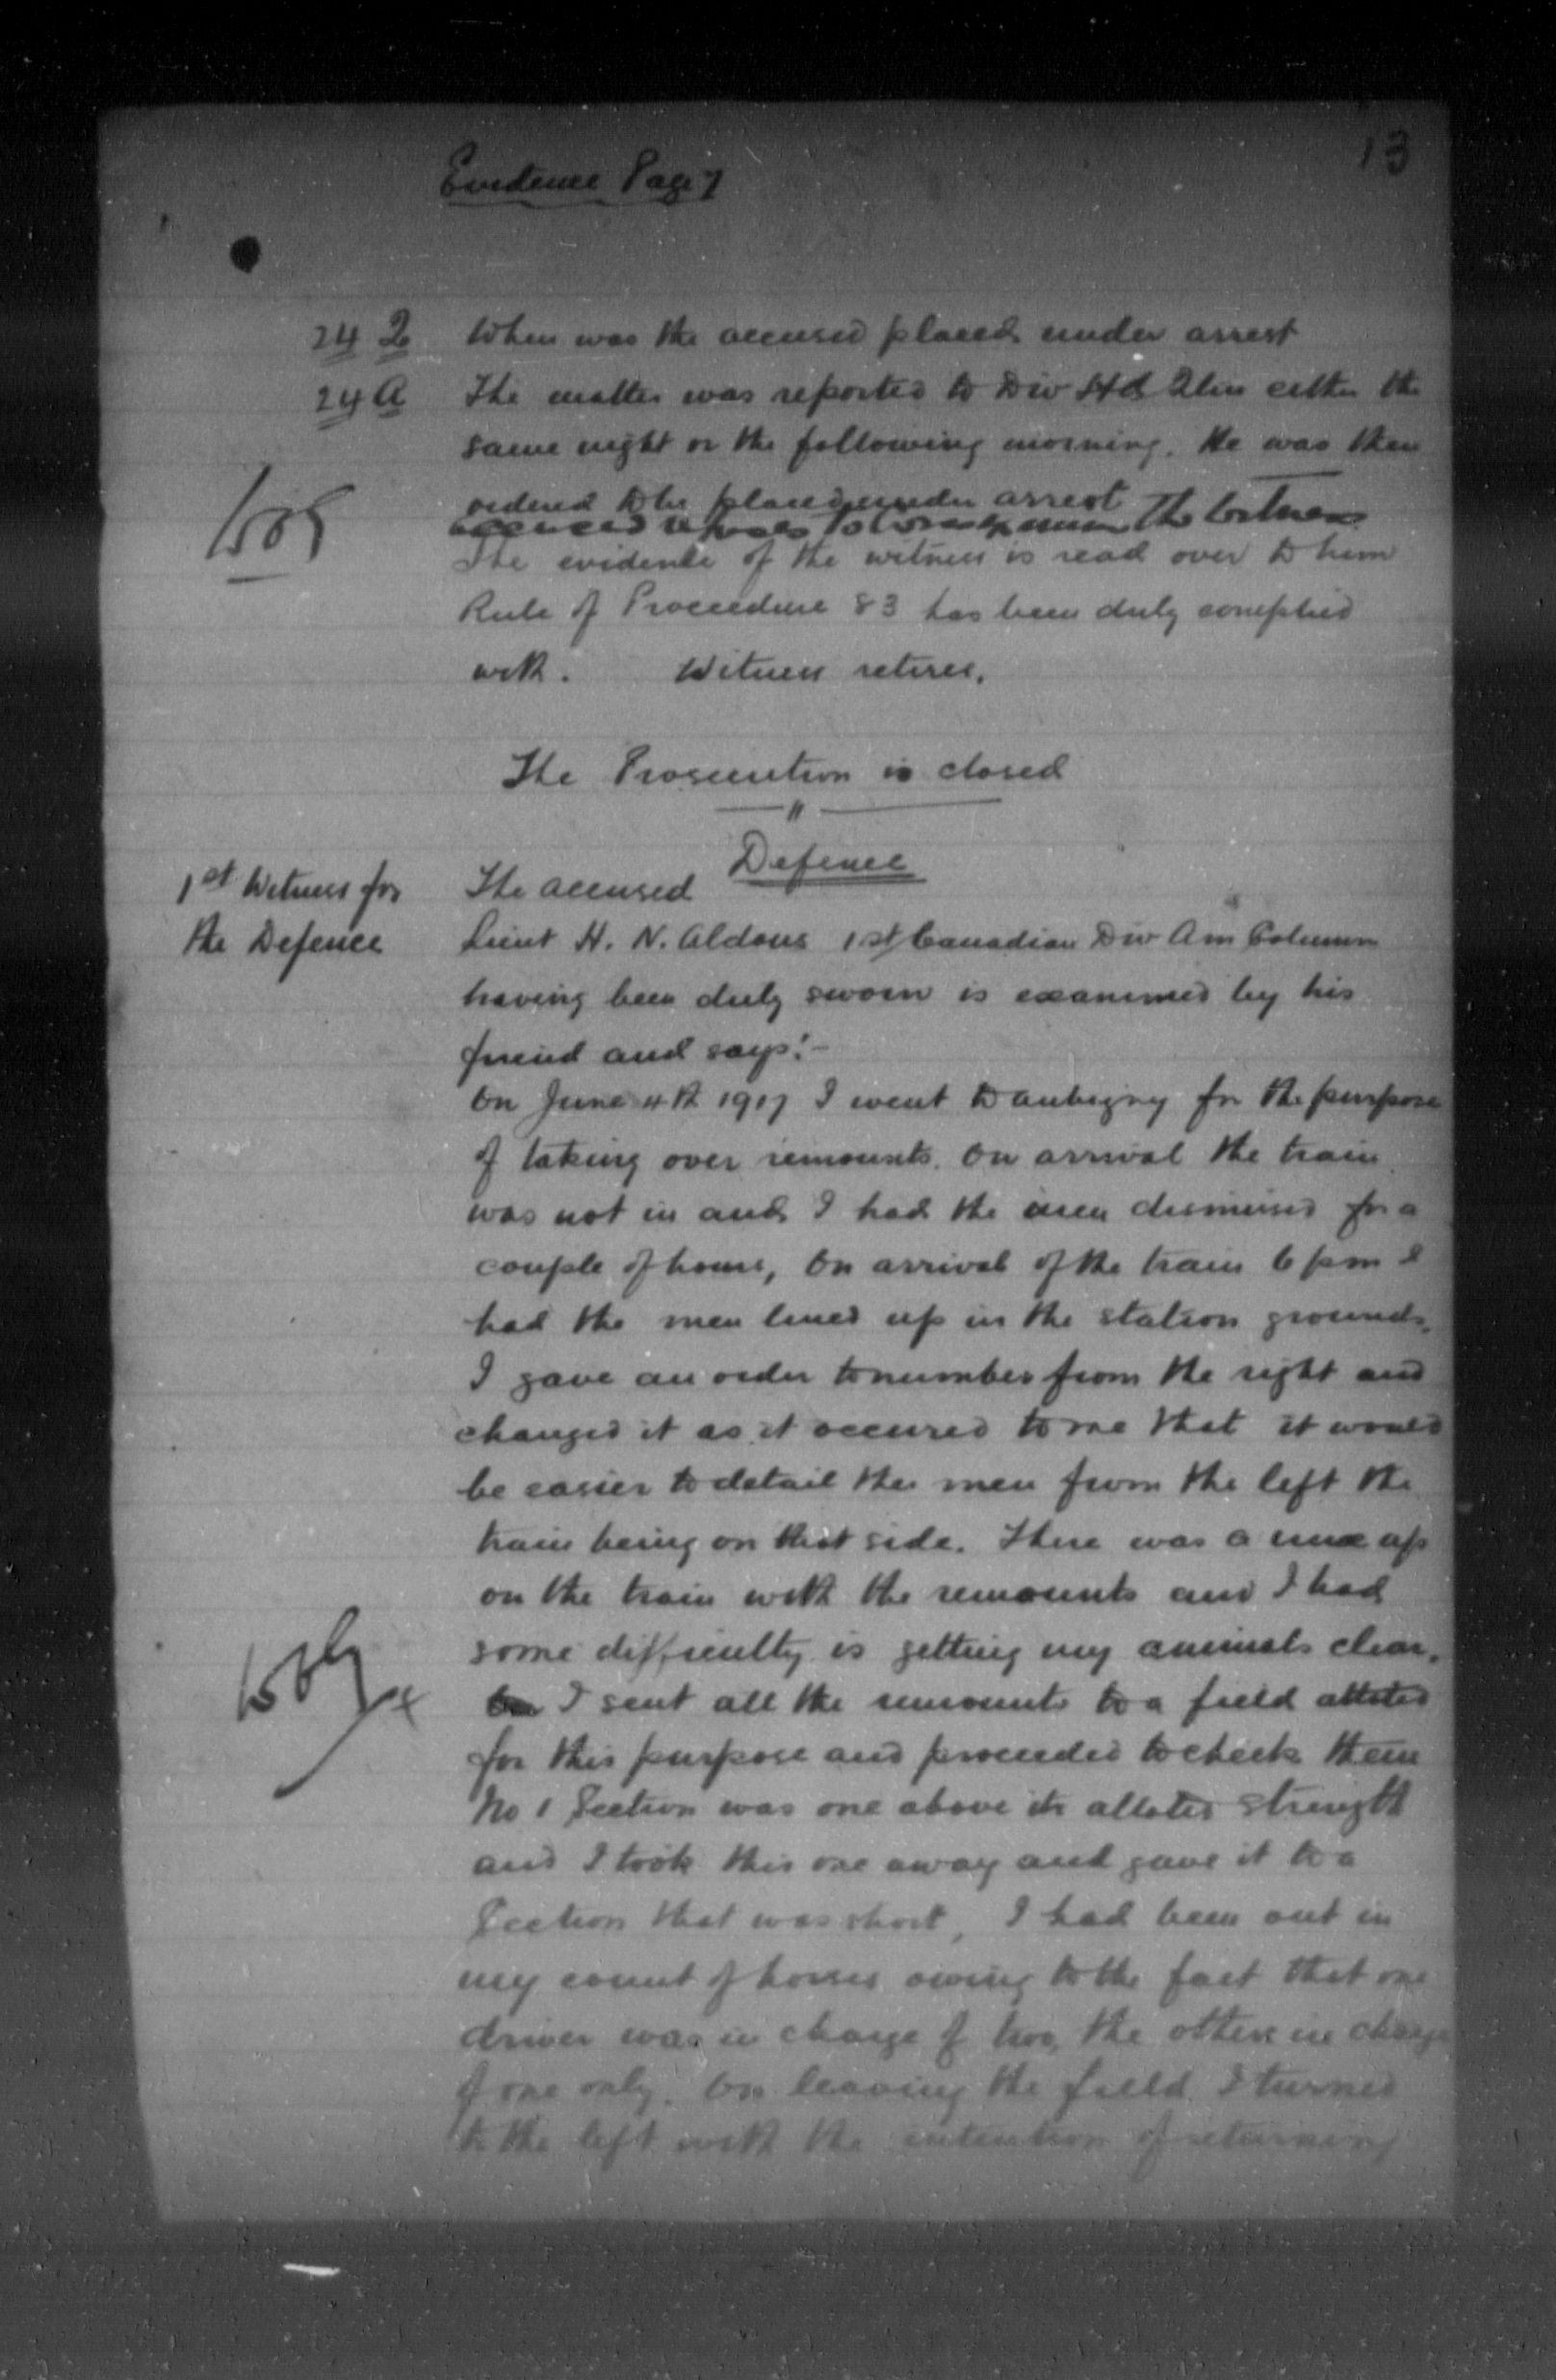 13
Evidence Page 7
24 Q When was the accused placed under arrest
24 A The matter was reported to Div Hd Qtrs either the
same night or the following morning. He was then
ordered to be placed under arrest
accused refuses to cross examine the witness
The evidence of the witness is read over to him
Rule of Procedure 83 has been duly complied
with. Witness retires.
The Prosecution is closed
"
Defence
1st Witness for The accused
the Defence Lieut H. N. Aldous 1st Canadian Div Am Column
having been duly sworn is examined by his
friend and says:-
On June 4th 1917 I went to Aubigny for the purpose
of taking over remounts. On arrival the train
was not in and I had the men dismissed for a
couple of hours, On arrival of the train 6 pm I
had the men lined up in the station grounds.
I gave an order to number from the right and
changed it as it occured to me that it would
be easier to detail the men from the left the
train being on that side. There was a mix up
on the train with the remounts and I had
some difficulty is getting my animals clear.
I sent all the remounts to a field alloted
for this purpose and proceeded to check them
No 1 Section was one above its alloted strength
and I took this one away and gave it to a
Section that was short, I had been out in
my count of horses owing to the fact that one
driver was in charge of two, the others in charge
of one only. On leaving the field I turned
to the left with the intention of returning